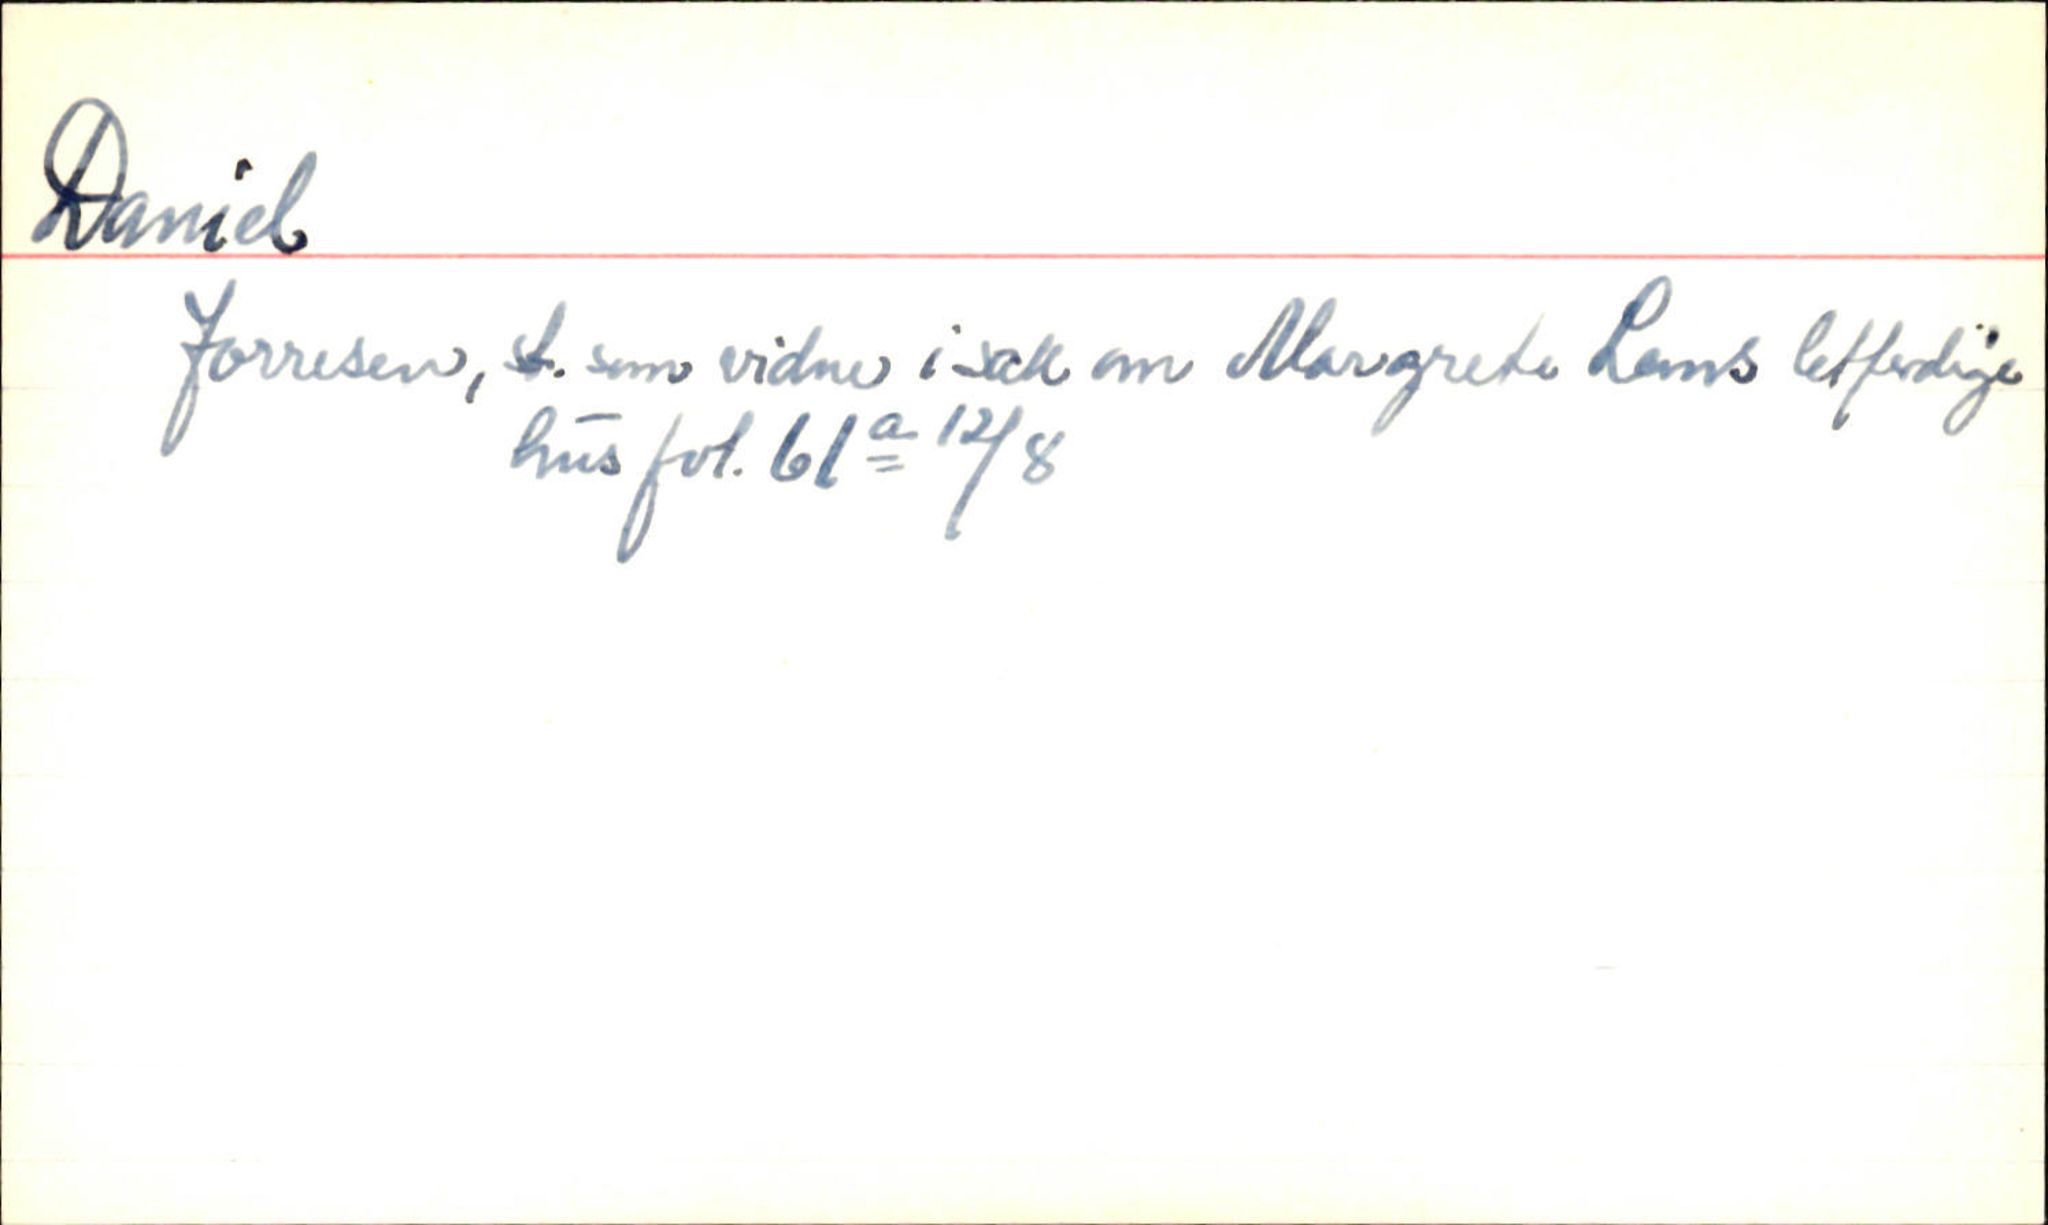 Daniel
Jorresen, st. som vidne i sak om Margrete Lams letferdige
hus fol. 61a 12/8